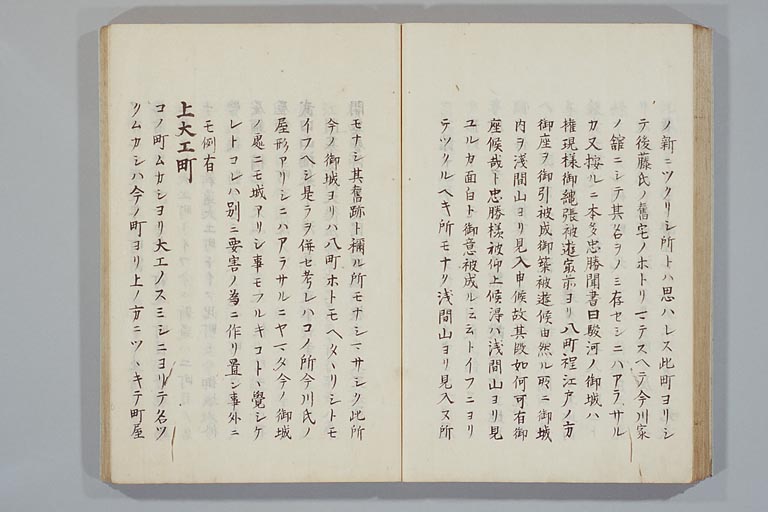 ノ新ニツクリシ所トハ思ハレス此町ヨリシ
テ後藤氏ノ舊宅ノホトリマテスヘテ今川家
ノ舘ニシテ其名ヲノミ存セシニハアラサル
カ又按ルニ本多忠勝聞書曰駿河ノ御城ハ
権現様御縄張被遊最前ヨリ八町程江戸ノ方
御座ヲ御引被成御築被遊候由然ル所ニ御城
内ヲ浅間山ヨリ見入申候故其段如何可有御
座候哉ト忠勝様被仰上候得ハ浅間山ヨリ見
ユルカ面白ト御意被成ルシムトイフニヨリ
テツクルヘキ所モナク浅間山ヨリ見入ヌ所
モナシ其舊跡ト稱ル所モナシマサシク此所
今ノ御城ヨリハ八町ホトモヘタヽリシトモ
イフヘシ是ラヲ併セ考レハコノ所今川氏ノ
屋形アリシニハアラサルニヤマタ今ノ御城
ノ處ニモ城アリシ事モフルキコトヽ覺シケ
レトコレハ別ニ要害ノ為ニ作リ置シ事外ニ
モ例有
上大工町
コノ町ムカシヨリ大工ノスミシニヨリテ名ツ
クムカシハ今ノ町ヨリ上ノ方ニツヽキテ町屋